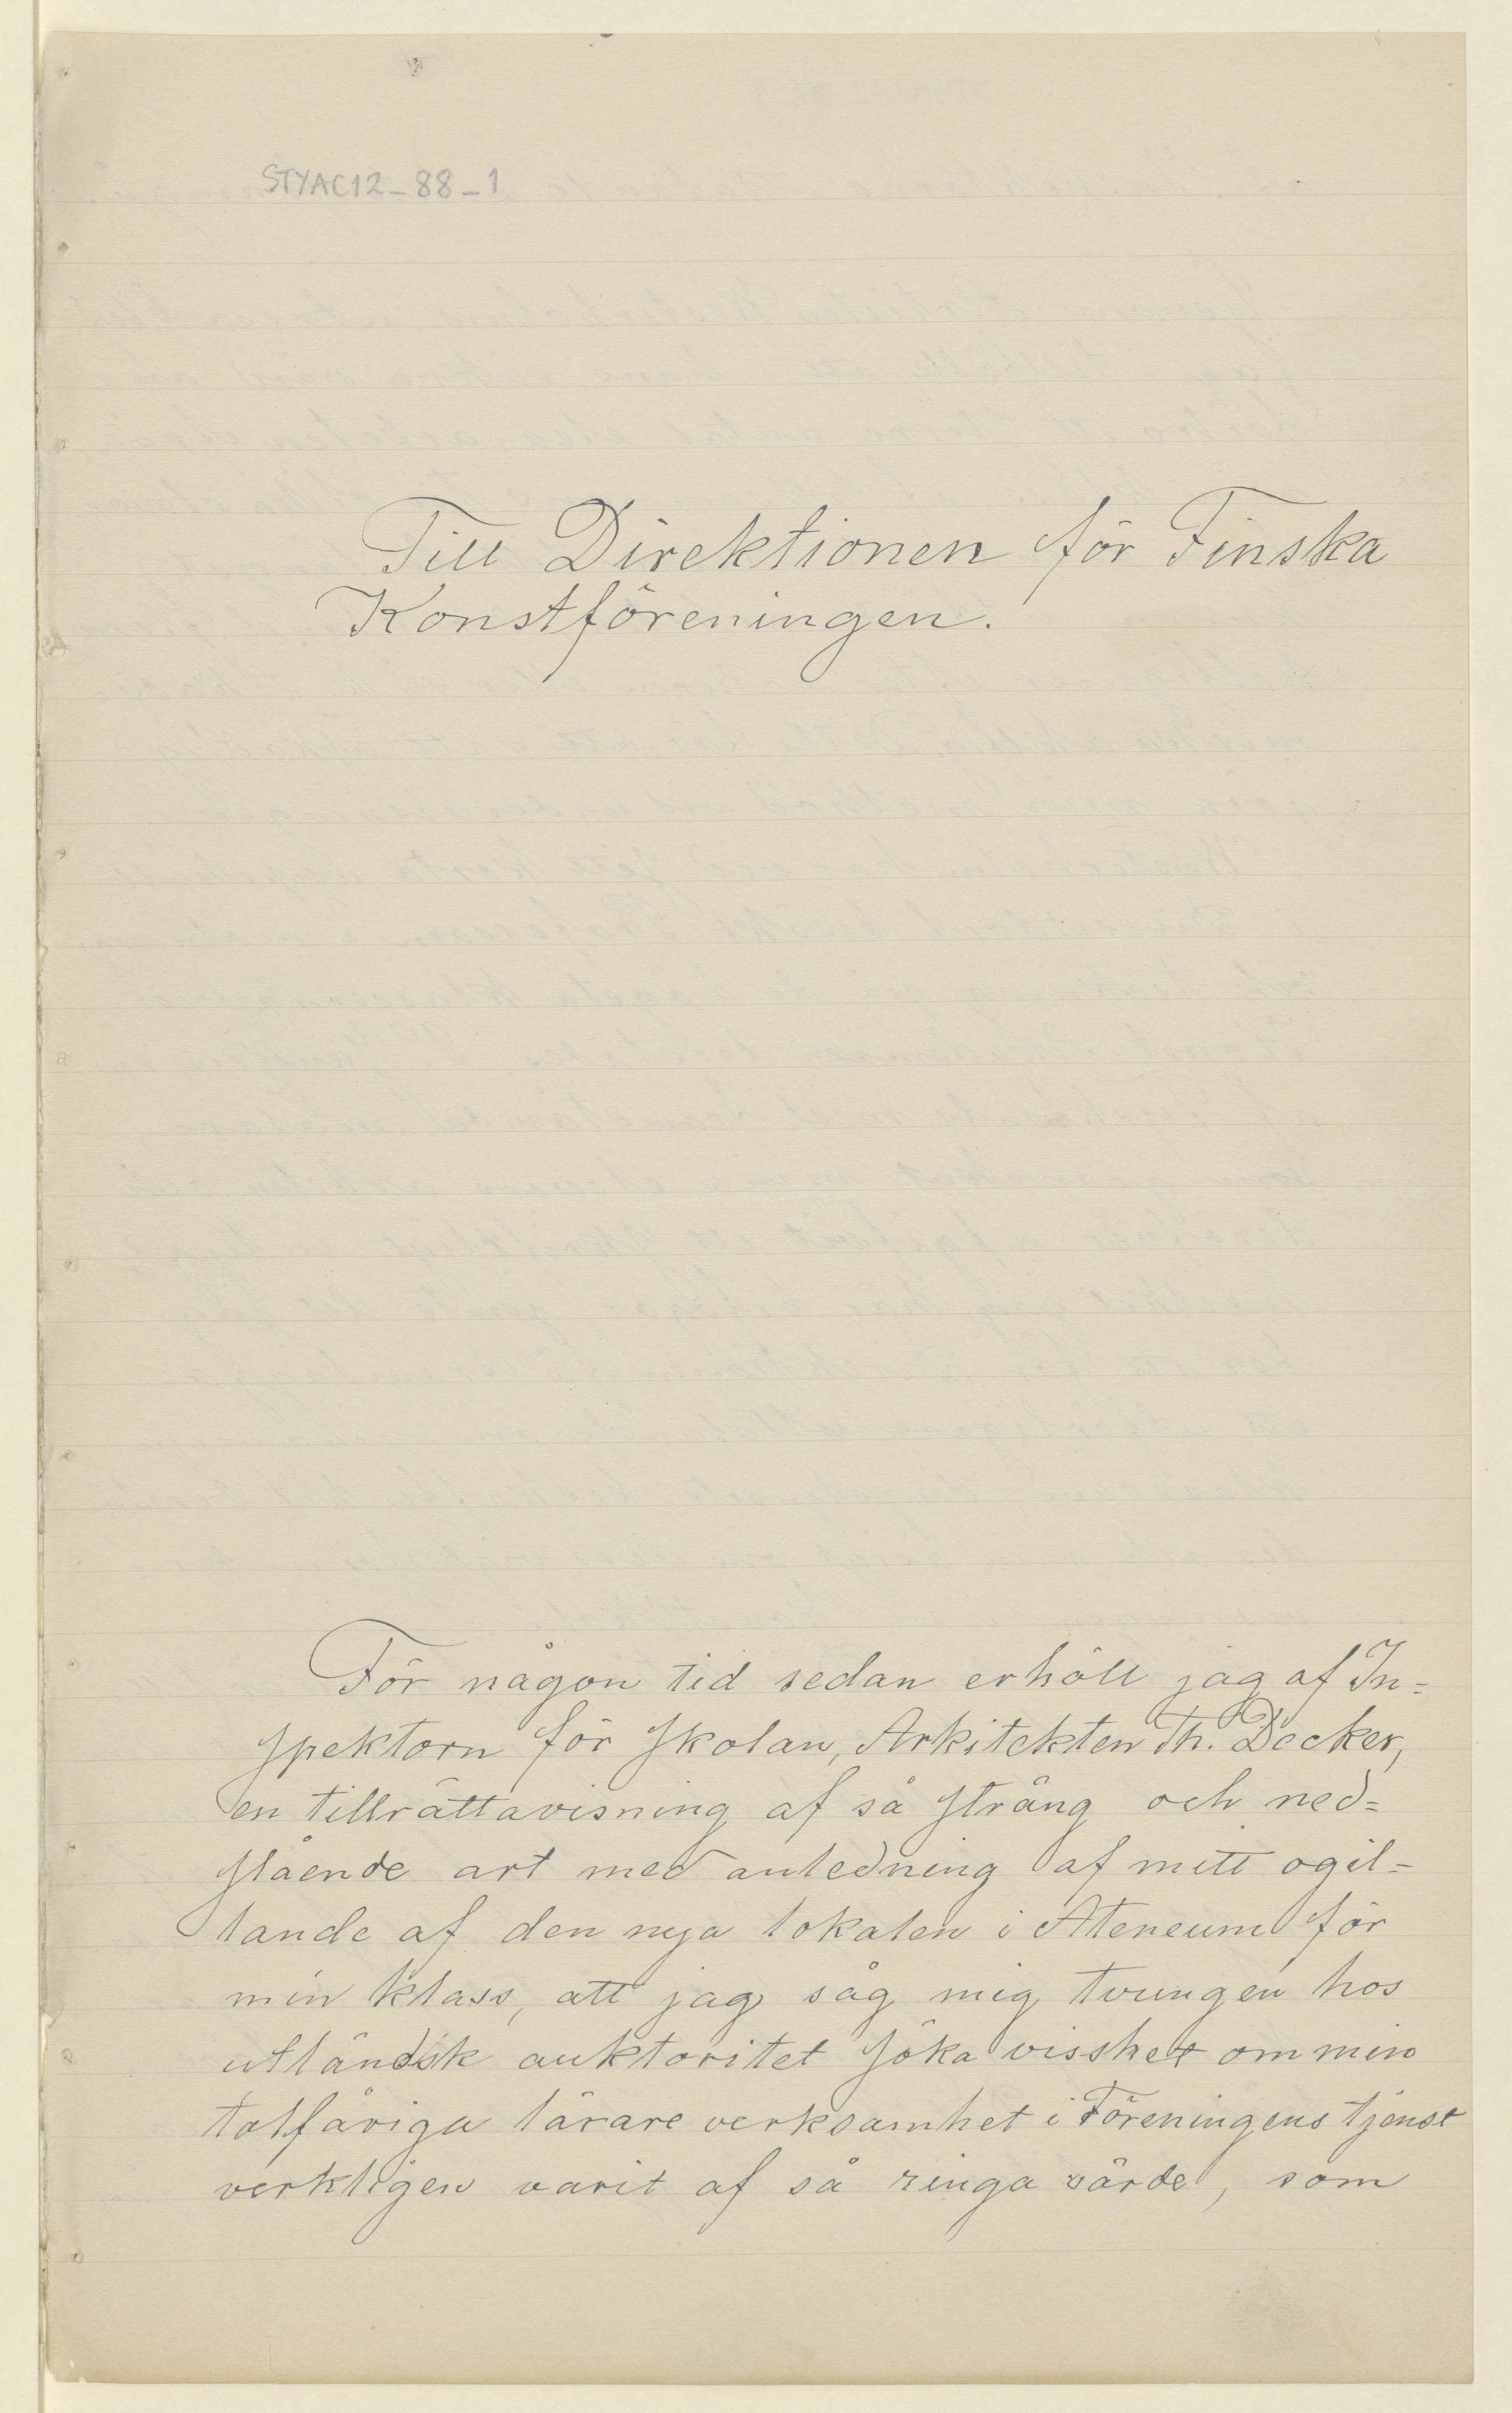 STYAC12_88_1
Till Direktionen för Finska
Konstföreningen.
För någon tid sedan erhöll jag af In=
spektorn för skolan, Arkitekten Th. Decker,
en tillrättavisning af så sträng och ned=
slående art med anledning af mitt ogil=
lande af den nya lokalen i Ateneum för
min klass, att jag såg mig tvungen hos
utländsk auktoritet söka visshet om min
tolfåriga lärare verksamhet i Föreningens tjenst
verkligen varit af så ringa värde, som